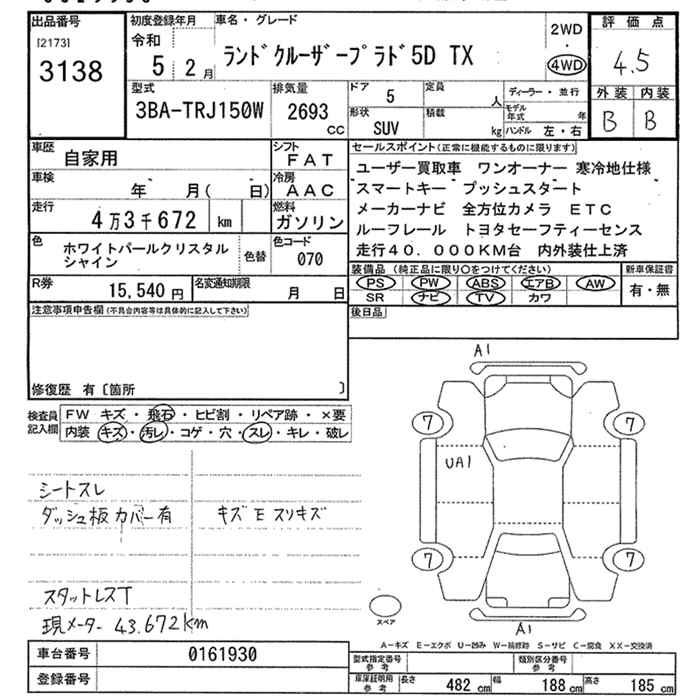 出品番号
[2173]
3138
初度登録年月
令和
5 2月
車名・グレード
ランドクルーザープラド5D TX
2WD
・
4WD
評価点
4.5
外装 内装
B B
型式
3BA-TRJ150W
排気量
2693
CC
ドア
5
定員
人
形状
SUV
積載
kg
ディーラー・並行
モデル年式
年
ハンドル 左・右
車歴
自家用
シフト
FAT
車検
年 月( 日)
冷房
AAC
走行
4万3千672 km
燃料
ガソリン
色
ホワイトパールクリスタル
シャイン
色替
色コード
070
R券
15,540円
名変通知期限
月 日
セールスポイント(正常に機能するものに限ります)
ユーザー買取車 ワンオーナー 寒冷地仕様
スマートキー プッシュスタート
メーカーナビ 全方位カメラ ETC
ルーフレール トヨタセーフティーセンス
走行40.000KM台 内外装仕上済
装備品(純正品に限り○をつけてください)
PS PW ABS エアB AW
SR ナビ TV カワ
新車保証書
有・無
後日品
注意事項申告欄(不具合内容等は具体的に記入して下さい)
修復歴 有[箇所 ]
検査員
記入欄
FW キズ・飛石・ヒビ割・リペア跡・×要
内装 キズ・汚レ・コゲ・穴・スレ・キレ・破レ
シートスレ
ダッシュ板カバー有 キズEスリキズ
スタットレスT
現メーター 43.672km
A1
7 7
UA1
7 7
スペア
A1
A-キズ E-エクボ U-凹み W-補修跡 S-サビ C-腐食 XX-交換済
車台番号
0161930
登録番号
型式指定番号
参考
類別区分番号
参考
車庫証明用
参考
長さ 482cm 幅 188cm 高さ 185cm